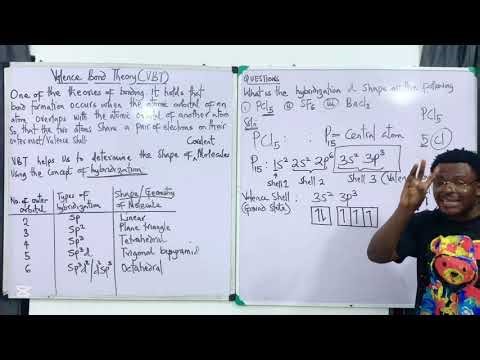 Valence Bond Theory (VBT)
One of the theories of bonding. It holds that
bond formation occurs when the atomic orbital of an
atom overlaps with the atomic orbital of another atom
So that the two atoms share a pair of electrons on their
outermost/Valence Shell.
Covalent
VBT helps us to determine the Shape of Molecules
Using the concept of hybridization
No. of outer orbital
Types of hybridization
Shape/Geometry of Molecule
2 Sp Linear
3 Sp2 Plane triangle
4 Sp3 Tetrahedral
5 Sp3d Trigonal bipyramid
6 Sp3d2/d2Sp3 Octahedral
QUESTIONS
What is the hybridization & Shape of the following
i) PCl5 ii) SF6 iii) BaCl2
Soln:
PCl5
PCl5: P15 = Central atom
5 Cl
P15: 1s2 2s2 2p6 3s2 3p3
Shell 1 Shell 2 Shell 3 (Valence
Valence Shell: 3s2 3p3
(ground State)